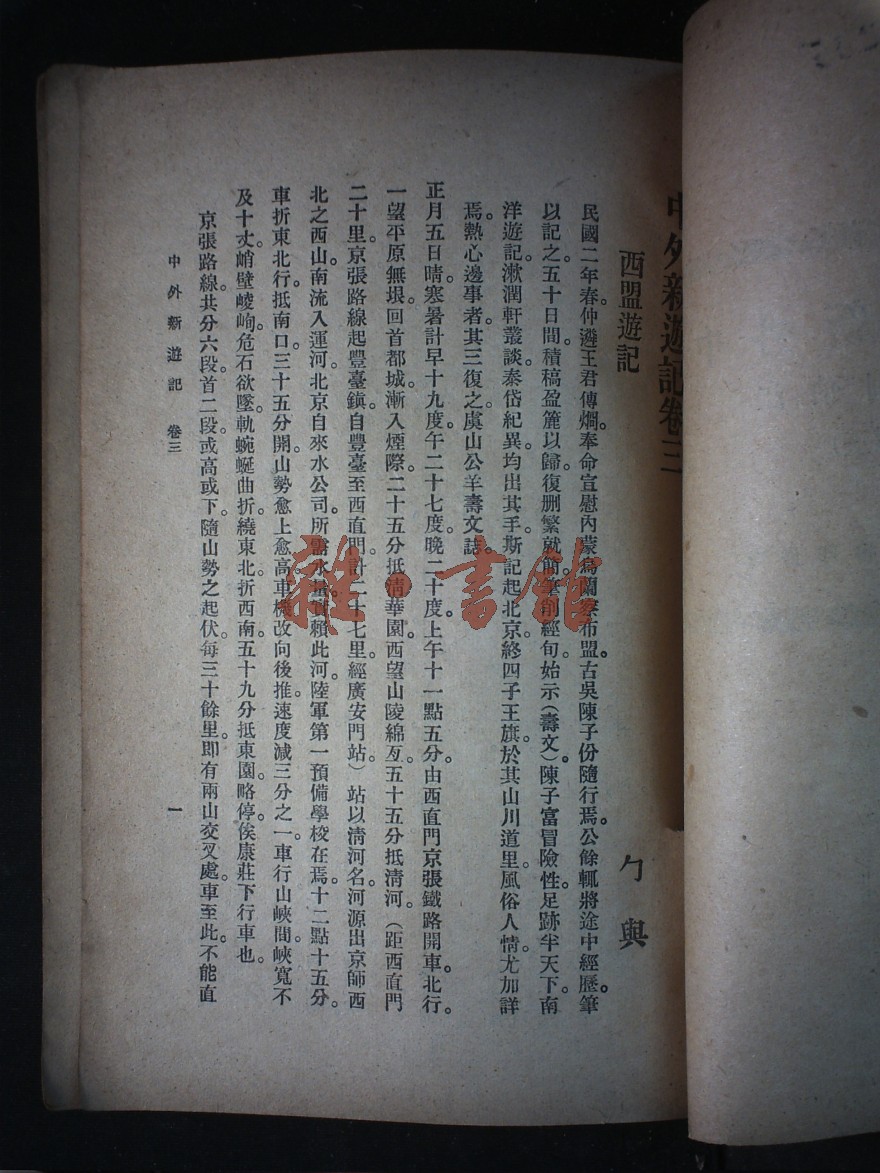 中外新遊記卷三
西盟遊記
勹與
民國二年春仲遴王君傳烱。奉命宣慰內蒙烏蘭察布盟。古吳陳子份隨行焉。公餘輒將途中經歷筆
以記之。五十日間。積稿盈簏以歸。復刪繁就簡。筆削經旬。始示(壽文)陳子富冒險性。足跡半天下。南
洋遊記。漱潤軒叢談。泰岱紀異。均出其手。斯記起北京。終四子王旗。於其山川道里。風俗人情。尤加詳
焉。熱心邊事者。其三復之。虞山公羊壽文誌。
正月五日晴寒暑計早十九度。午二十七度。晚二十度。上午十一點五分。由西直門京張鐵路開車北行。
一望平原無垠。回首都城。漸入煙際。二十五分抵清華園。西望山陵綿亙。五十五分抵清河。(距西直門
二十里。京張路線起豐臺鎮。自豐臺至西直門。計二十七里。經廣安門站。)站以清河名。河源出京師西
北之西山。南流入運河。北京自來水公司。所需水量。實賴此河。陸軍第一預備學校在焉。十二點十五分。
車折東北行。抵南口。三十五分開。山勢愈上愈高。車機改向後推。速度減三分之一。車行山峽間。峽寬不
及十丈。峭壁崚峋。危石欲墜。軌蜿蜒曲折。繞東北。折西南。五十九分抵東園。略停。俟康莊下行車也。
京張路線。共分六段。首二段。或高或下。隨山勢之起伏。每三十餘里。即有兩山交叉處。車至此。不能直
中外新遊記 卷三
一
雜·書館